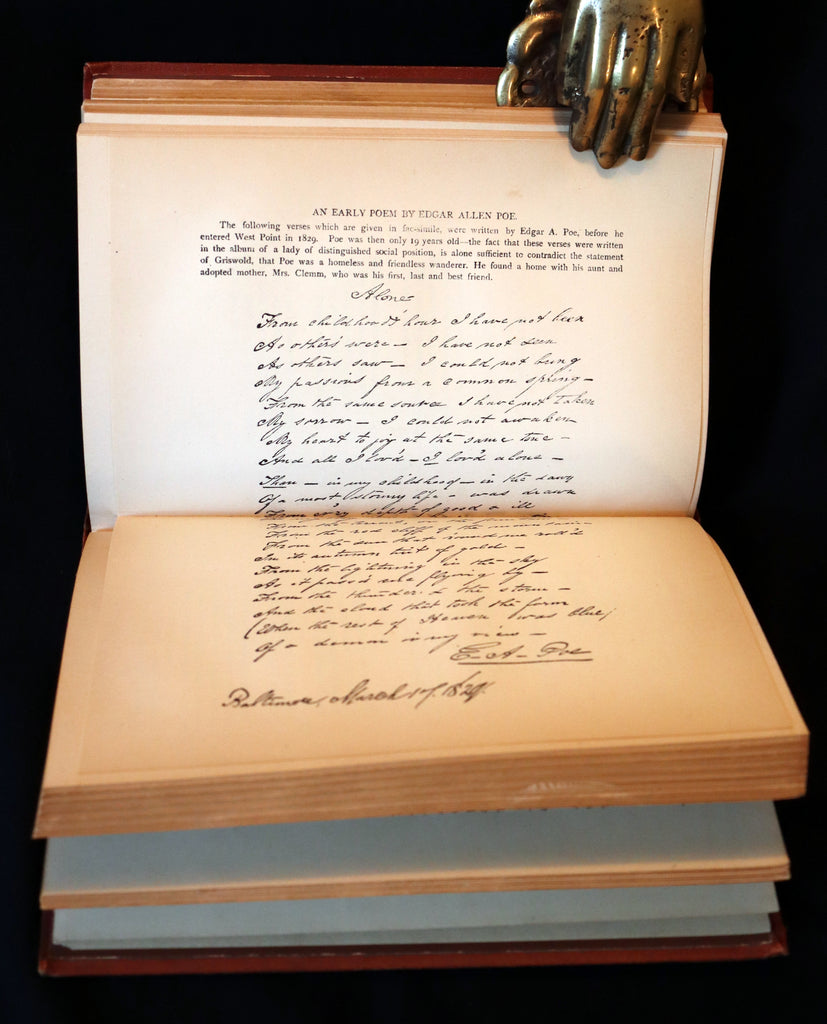 AN EARLY POEM BY EDGAR ALLEN POE.
The following verses which are given in fac-simile, were written by Edgar A. Poe, before he
entered West Point in 1829. Poe was then only 19 years old—the fact that these verses were written
in the album of a lady of distinguished social position, is alone sufficient to contradict the statement
of Griswold, that Poe was a homeless and friendless wanderer. He found a home with his aunt and
adopted mother, Mrs. Clemm, who was his first, last and best friend.
Alone
From childhood's hour I have not been
As others were — I have not seen
As others saw — I could not bring
My passions from a common spring —
From the same source I have not taken
My sorrow — I could not awaken
My heart to joy at the same tone —
And all I lov'd — I lov'd alone —
Then — in my childhood — in the dawn
Of a most stormy life — was drawn
From ev'ry depth of good & ill
From the red cliff of the mountain —
From the sun that round me roll'd
In its autumn tint of gold —
From the lightning in the sky
As it pass'd me flying by —
From the thunder & the storm —
And the cloud that took the form
(When the rest of Heaven was blue)
Of a demon in my view —
E. A. Poe
Baltimore, March 17, 1829.